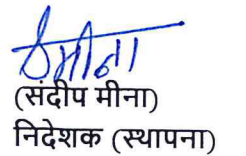 मीना
(संदीप मीना)
निदेशक (स्थापना)